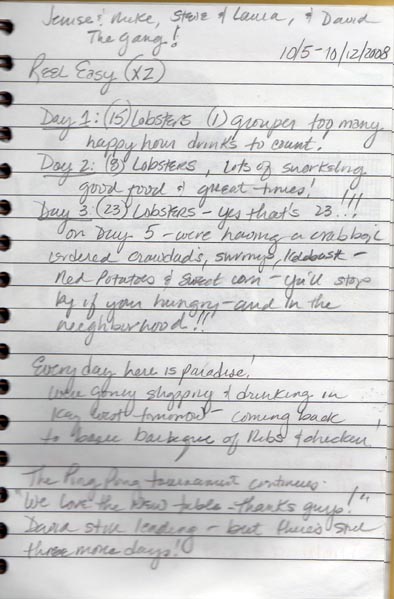 Jenise & Mike, Steve & Laura, & David
The Gang!
10/5-10/12/2008
Reel Easy (x2)
Day 1: (15) Lobsters (1) grouper too many
happy hour drinks to count.
Day 2: (8) Lobsters, lots of snorkeling
good food & great times!
Day 3 (23) Lobsters - yes that's 23!!!
on Day 5 - we're having a crabboil
ordered crawdads, shrimp, -
Red Potatoes & sweet corn - y'all stop
by if your hungry - and in the
neighborhood!!
Everyday here is paradise!
we're going shopping & drinking in
Key West tomorrow - coming back
to barbeque of Ribs & chicken,
The Ping Pong tournament continues.
"We love the new table - thanks guys!"
David still leading - but there's still
three more days!